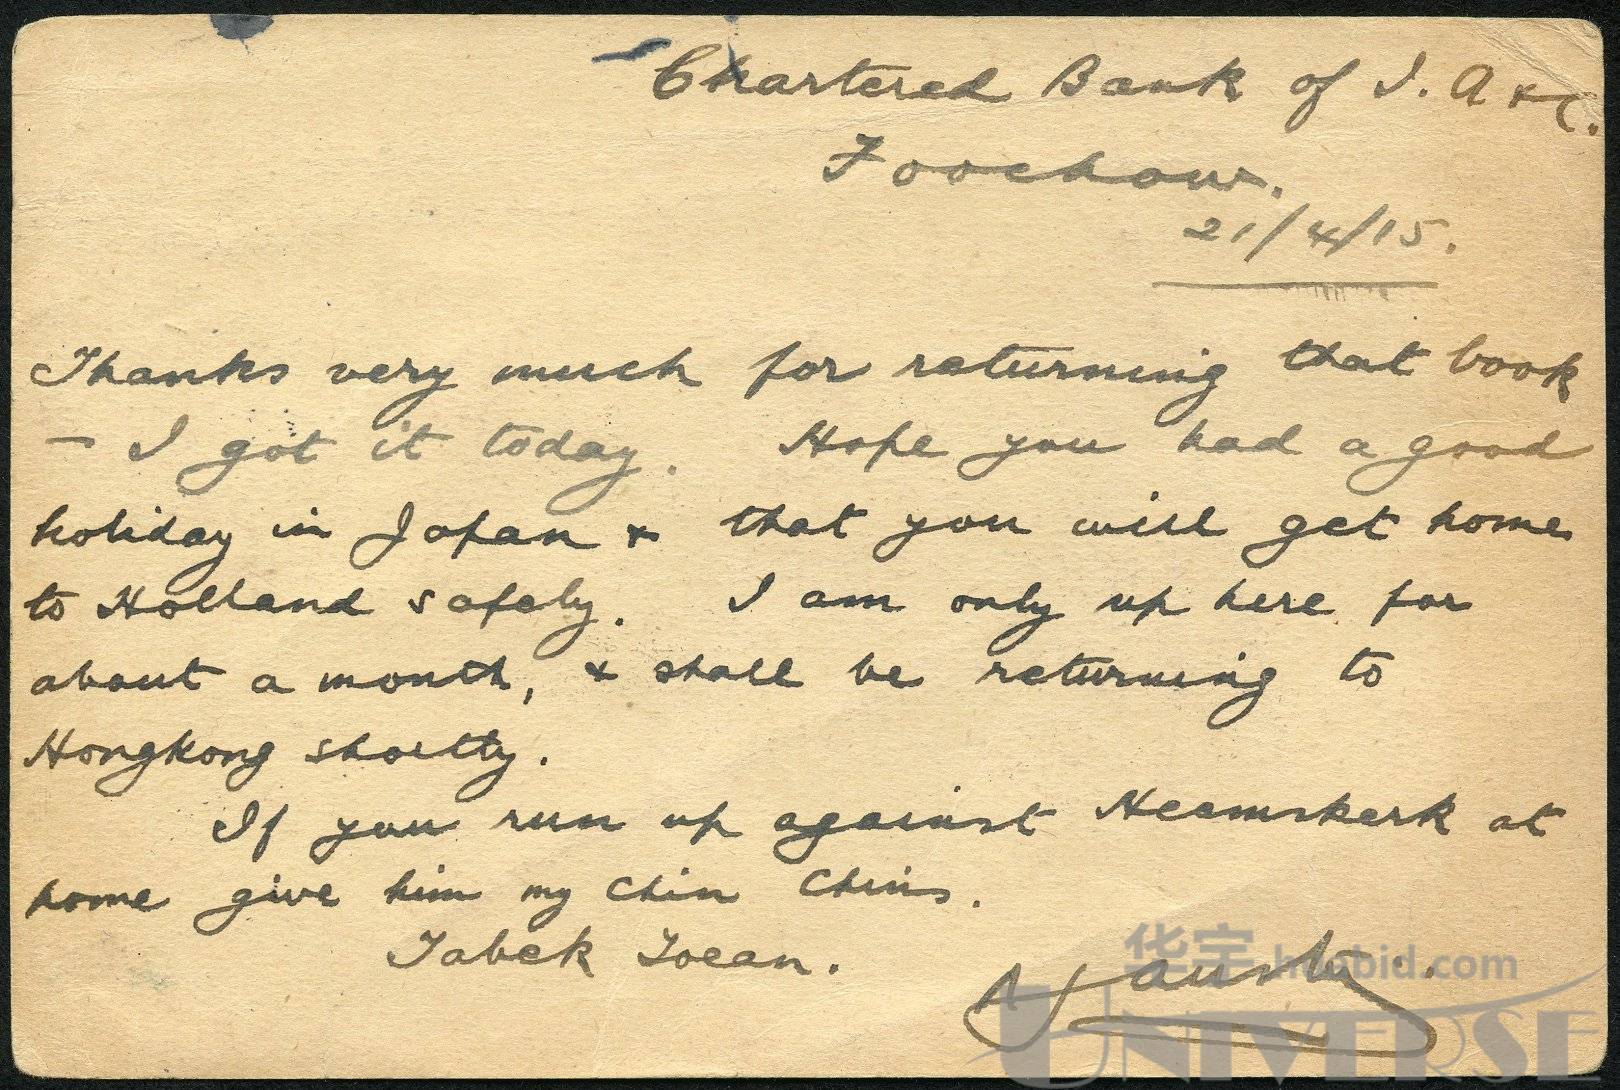 Chartered Bank of I. A & C.
Foochow.
21/4/15.
Thanks very much for returning that book
- I got it today. Hope you had a good
holiday in Japan & that you will get home
to Holland safely. I am only up here for
about a month, & shall be returning to
Hongkong shortly.
If you run up against Heemskerk at
home give him my Chin Chins.
Tabek Toean.
华宇 huabid.com
UNIVERSE